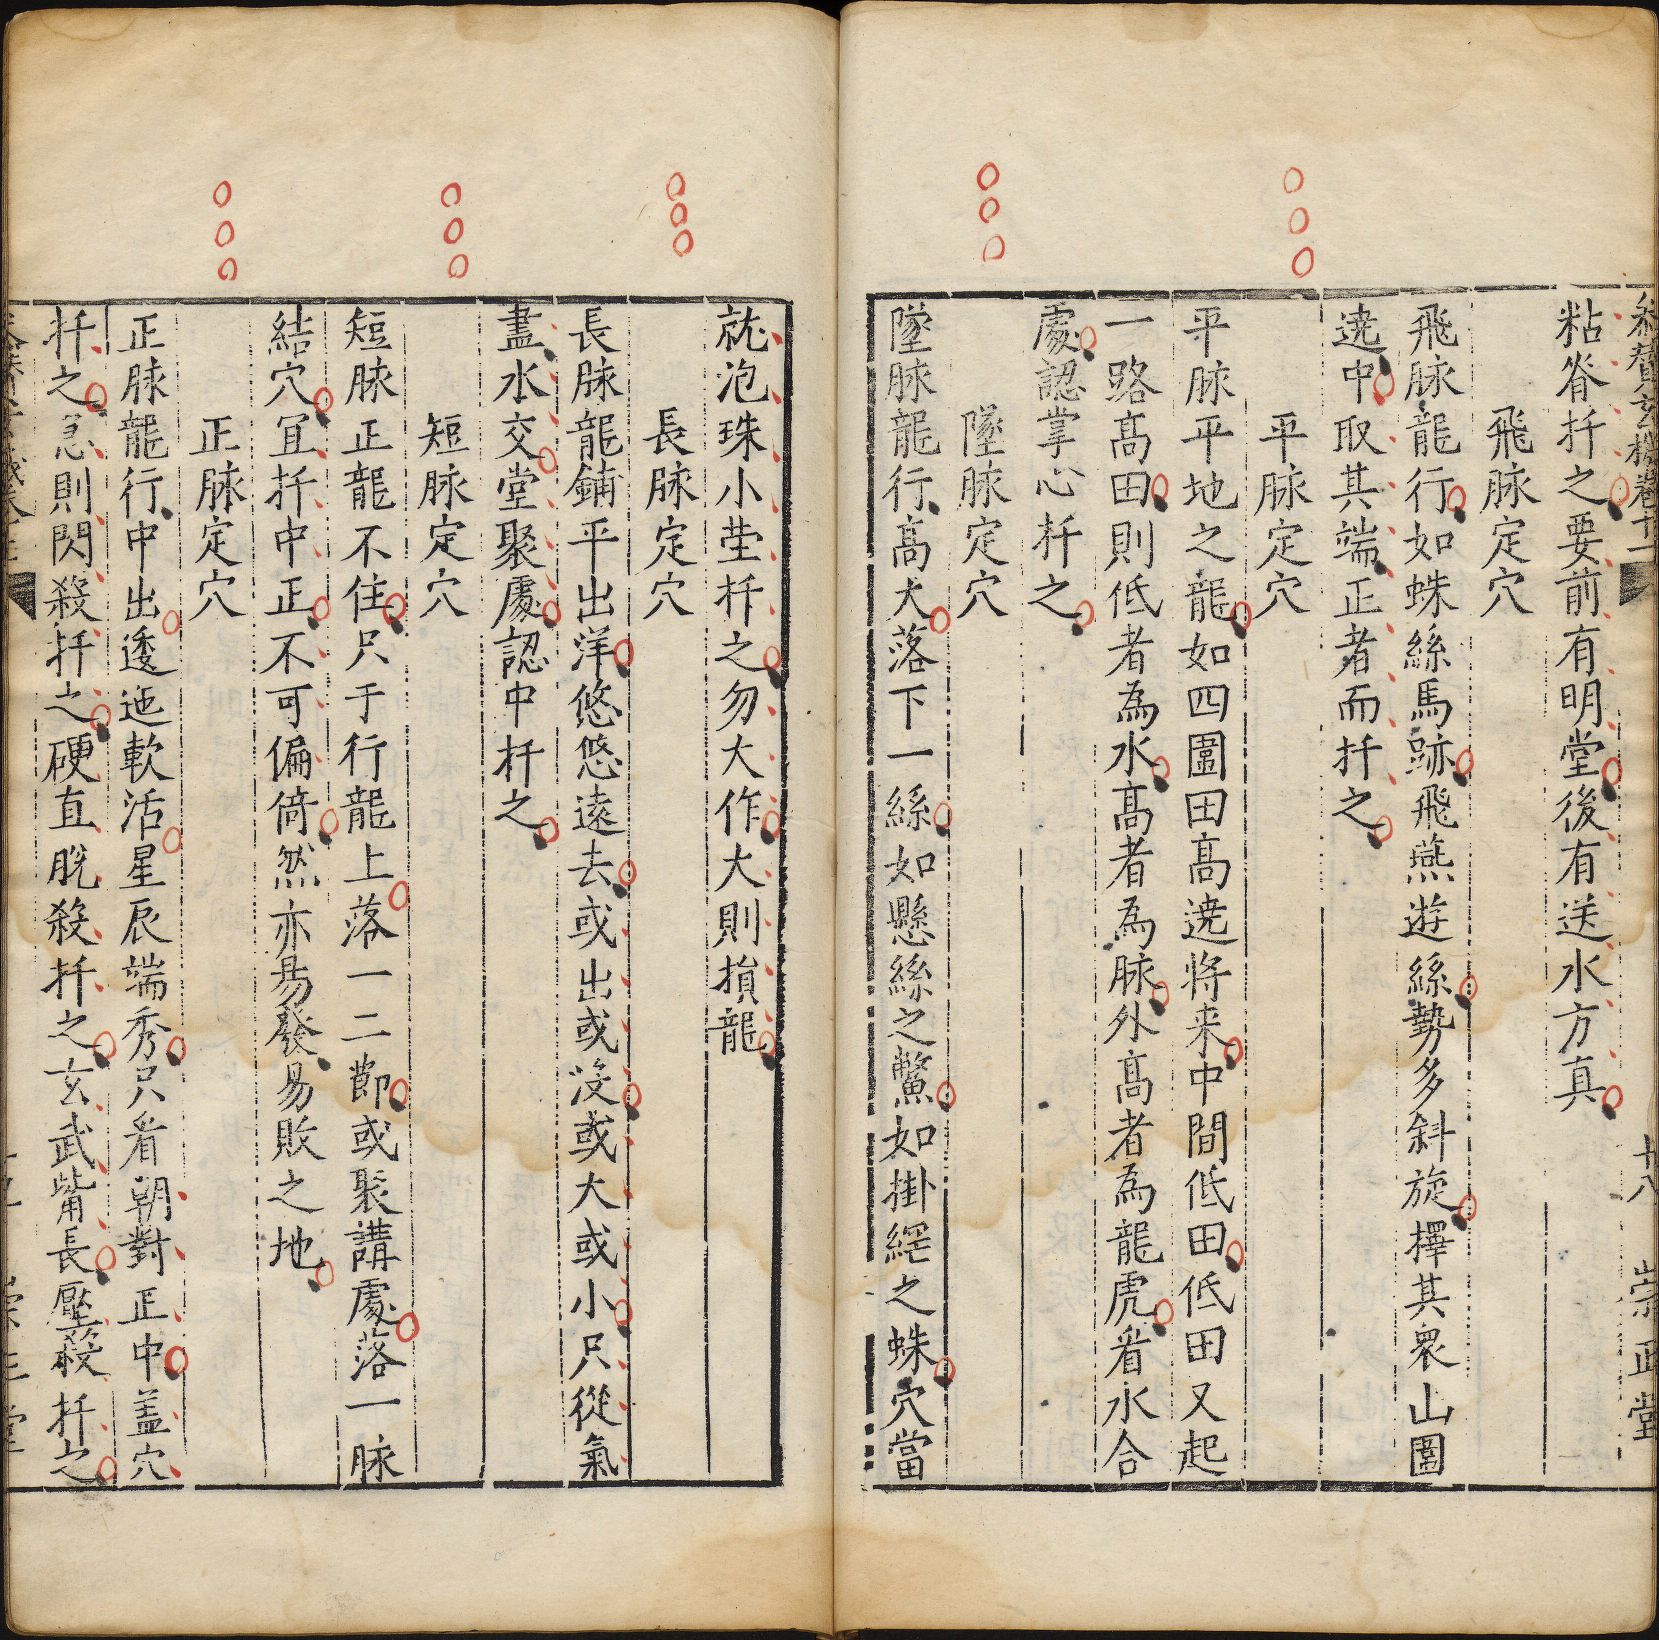 玄機卷十一
十八
崇正堂
粘脊扦之要前有明堂後有送水方真
飛脉定穴
飛脉龍行如蛛絲馬跡飛燕遊絲勢多斜旋擇其衆山圍
遶中取其端正者而扦之
平脉定穴
平脉平地之龍如四圍田高遶將来中間低田低田又起
一路髙田則低者為水髙者為脉外髙者為龍虎看水合
處認掌心扦之
墜脉定穴
墜脉龍行髙大落下一絲如懸絲之鱉如掛網之蛛穴當
就泡珠小塋扦之勿大作大則損龍
長脉定穴
長脉龍鋪平出洋悠悠遠去或出或没或大或小只從氣
盡水交堂聚處認中扦之
短脉定穴
短脉正龍不住只于行龍上落一二節或聚講處落一脉
結穴宜扦中正不可偏倚然亦易發易敗之地
正脉定穴
正脉龍行中出逶迤軟活星辰端秀只看朝對正中盖穴
扦之急則閃殺扦之硬直脫殺扦之玄武觜長壓殺扦之